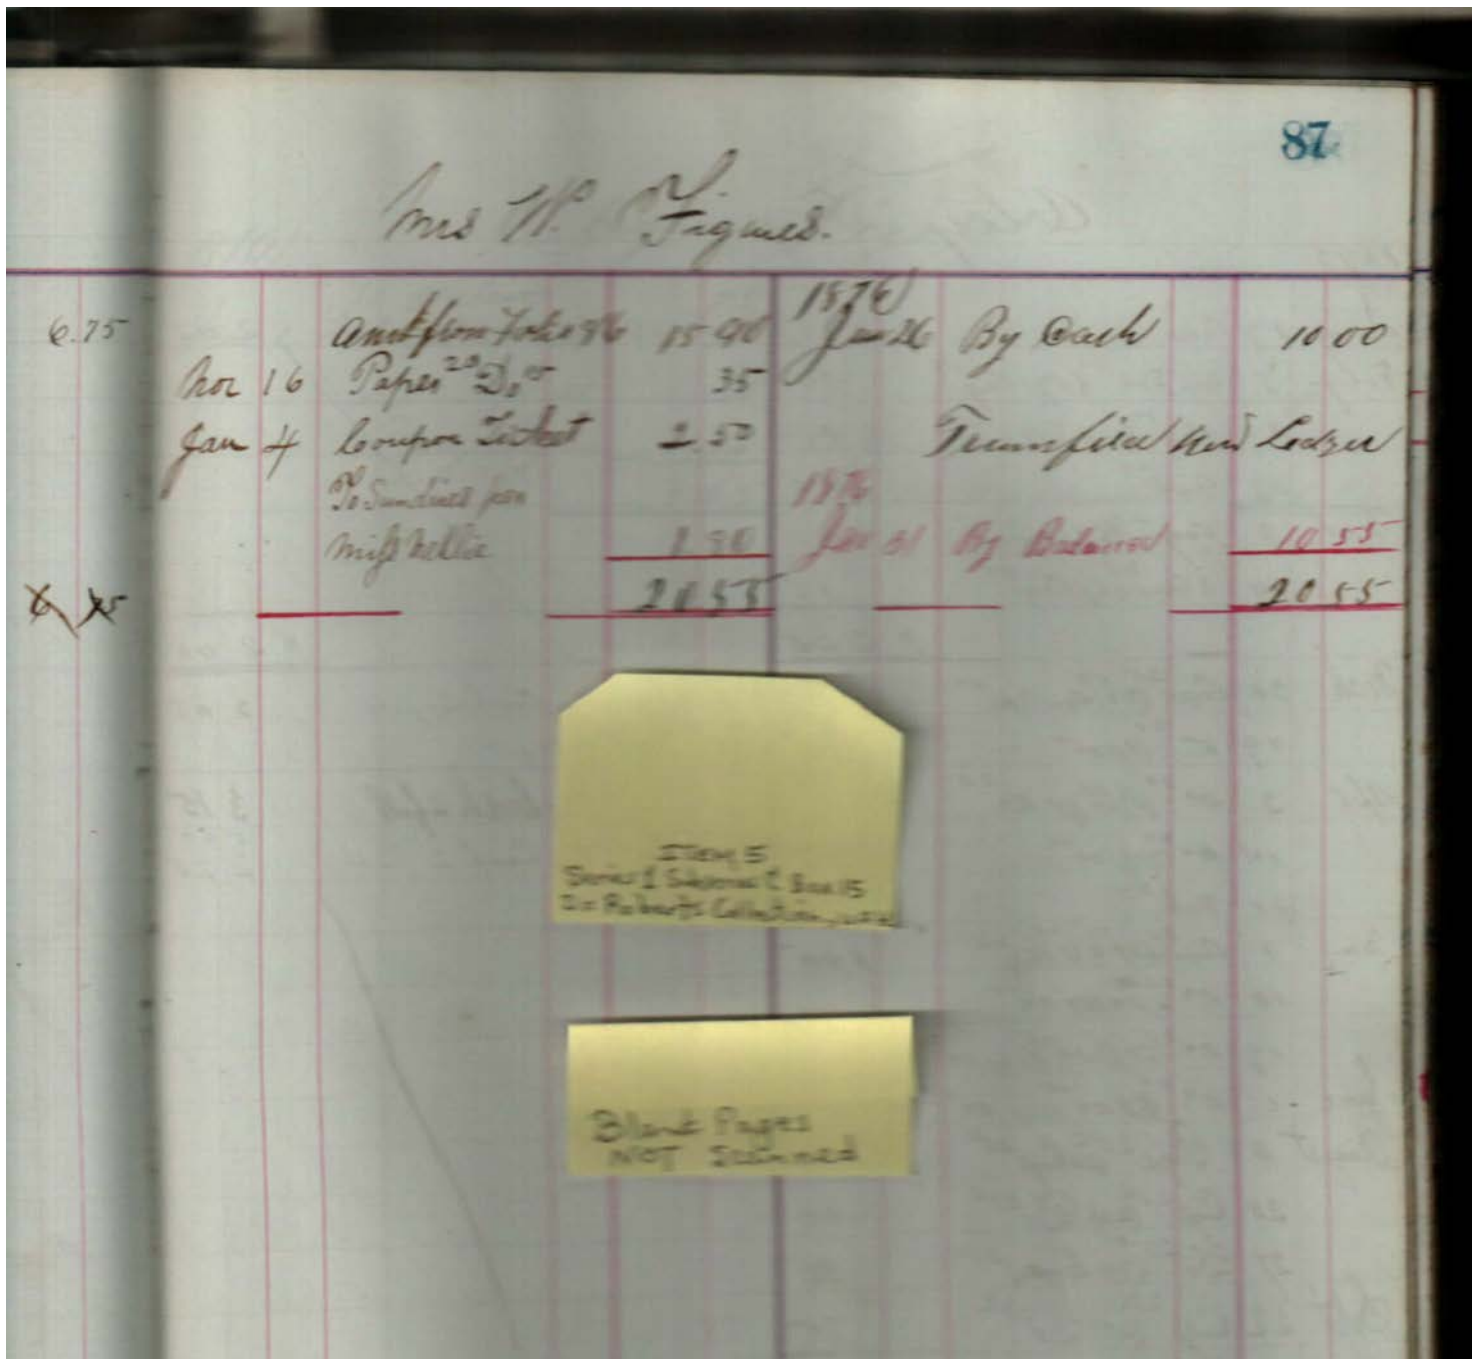 87
Mrs W. Figures.
6.75
Amt from Folio 86 15 90
Nov 16 Paper 20 Do 15 35
Jan 4 Coupon Ticket 2.50
To Sundries per
Miss Nellie 1 80
20 55
6 75
1876
Jan 26 By Cash 10 00
Transfered New Ledger
1876
Jan 31 By Balance 10 55
20 55
Item 5
Series 1 Subseries C Box 15
Roberts Collection
Blank Pages
NOT Scanned